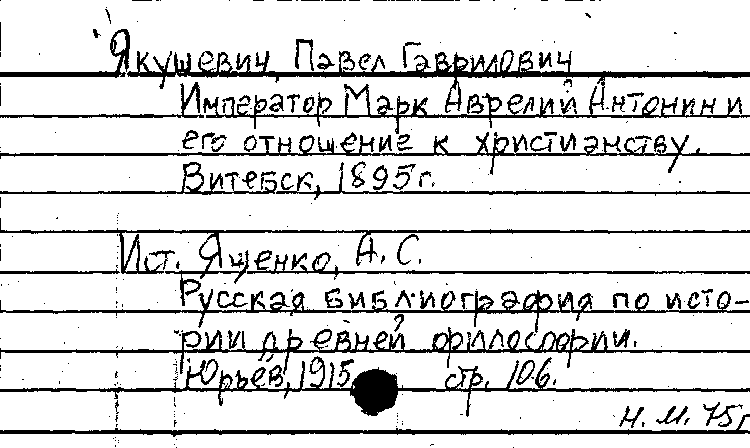 Якушевич, Павел Гаврилович
Император Марк Аврелий Антонин и
его отношение к христианству.
Витебск, 1895 г.
Ист. Ященко, А. С.
Русская библиография по исто-
рии древней философии.
Юрьев, 1915, стр. 106.
Н. М. 75 г